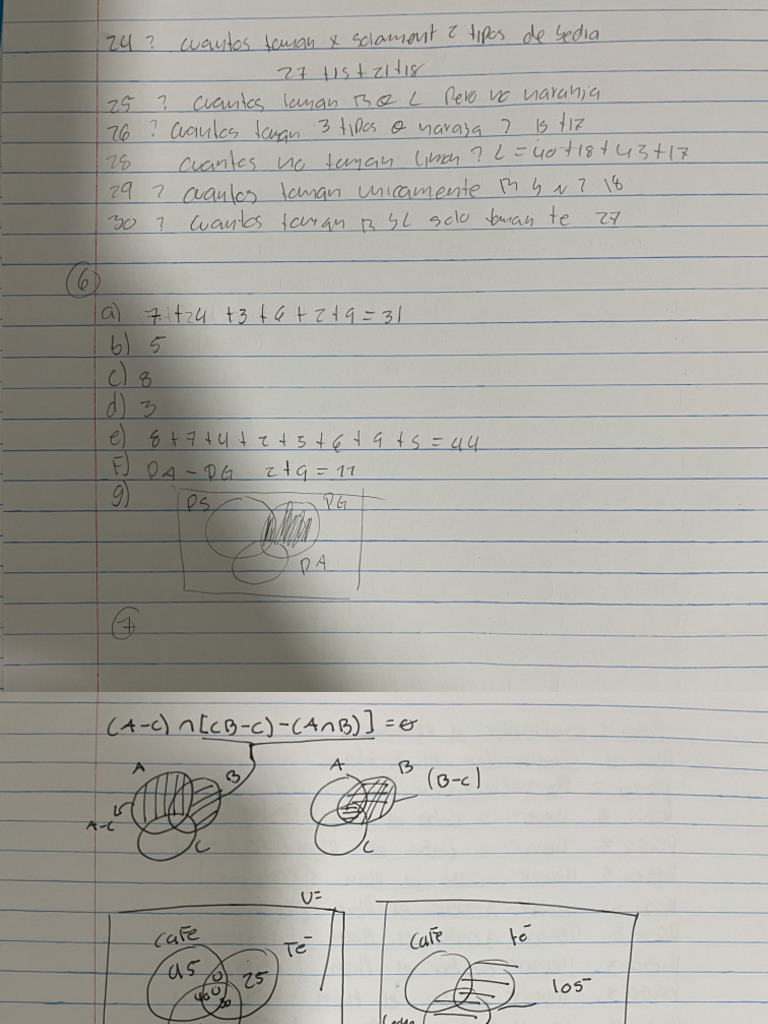 24 ? cuantos toman x solament 2 tipos de
27 + 15 + 21 + 18
25 ? cuantos toman B o L pero no naranja
26 ? cuantos toman 3 tipos o naraja ? 15 + 17
28 cuantos no toman limon ? L = 40 + 18 + 43 + 17
29 ? cuantos toman unicamente B y N ? 18
30 ? cuantos toman B y L solo toman te 27
6
a) 7 + 24 + 3 + 6 + 2 + 9 = 31
b) 5
c) 8
d) 3
e) 8 + 7 + 4 + 2 + 3 + 6 + 9 + 5 = 44
F) DA - DG 2 + 9 = 11
g)
DS DG
DA
7
(A-C) ∩ [(B-C) - (A∩B)] = ∅
A B A B (B-C)
A-C
C C
U=
Cafe Te Cafe te
45 25 105
40 30